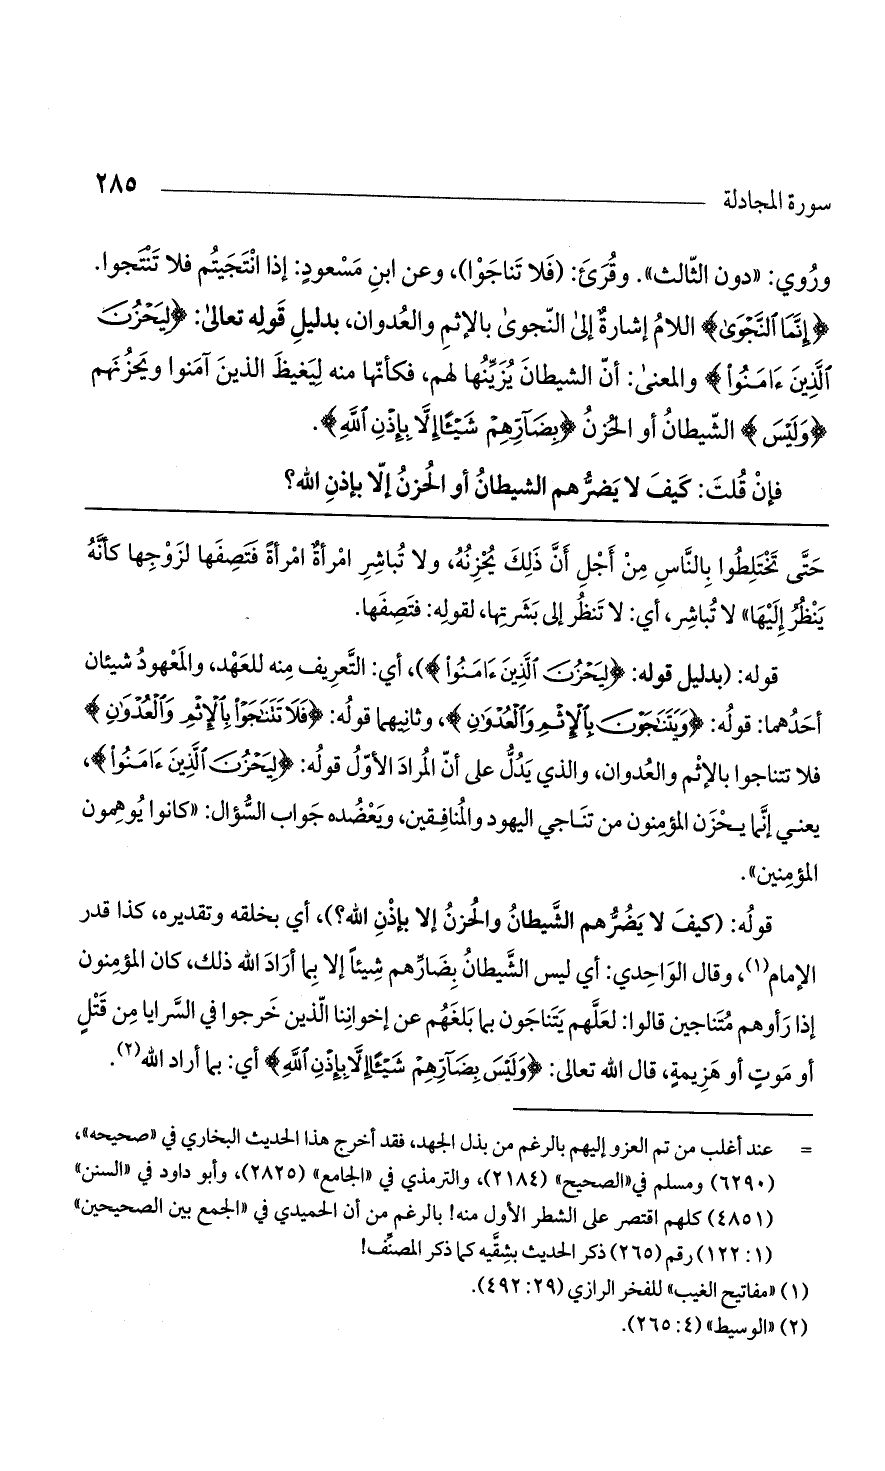 سورة المجادلة ٢٨٥
ورُوي: «دون الثّالث». وقُرَئَ: (فَلا تَناجَوْا)، وعن ابنِ مَسْعودٍ: إذا انْتَجَيتُم فلا تَنْتَجوا.
﴿إِنَّمَا ٱلنَّجْوَىٰ﴾ اللامُ إشارةٌ إلى النّجوىٰ بالإثمِ والعُدوان، بدليلِ قَولِه تعالىٰ: ﴿لِيَحْزُنَ
ٱلَّذِينَ ءَامَنُوا۟﴾ والمعنىٰ: أنّ الشيطانَ يُزَيِّنُها لهم، فكأنّها منه لِيَغيظَ الذينَ آمَنوا ويَحزُنَهم
﴿وَلَيْسَ﴾ الشّيطانُ أو الحُزنُ ﴿بِضَآرِّهِمْ شَيْـًٔا إِلَّا بِإِذْنِ ٱللَّهِ﴾.
فإنْ قُلتَ: كَيفَ لا يَضرُّهم الشيطانُ أو الحُزنُ إلّا بإذنِ الله؟
حَتَّى تَخْتَلِطُوا بِالنَّاسِ مِنْ أَجْلِ أَنَّ ذَلِكَ يُحْزِنُهُ، ولا تُباشِرِ امْرأةٌ امْرأةً فَتَصِفَها لزَوْجِها كأنَّهُ
يَنْظُرُ إِلَيْهَا» لا تُباشِر، أي: لا تَنظُر إلى بَشَرتِها، لقولِه: فتَصِفَها.
قوله: (بدليل قوله: ﴿لِيَحْزُنَ ٱلَّذِينَ ءَامَنُوا۟﴾)، أي: التَّعريف مِنه للعَهْد، والمَعْهودُ شيئان
أحَدُهما: قولُه: ﴿وَيَتَنَٰجَوْنَ بِٱلْإِثْمِ وَٱلْعُدْوَٰنِ﴾، وثانِيهما قولُه: ﴿فَلَا تَتَنَٰجَوْا۟ بِٱلْإِثْمِ وَٱلْعُدْوَٰنِ﴾
فلا تتناجوا بالإثْم والعُدوان، والذي يَدُلُّ على أنّ المُرادَ الأوّلُ قولُه: ﴿لِيَحْزُنَ ٱلَّذِينَ ءَامَنُوا۟﴾،
يعني إنَّما يحْزَن المؤمنون من تناجي اليهود والمُنافِقين، ويَعْضُده جَواب السُّؤال: «كانوا يُوهِمون
المؤمِنين».
قولُه: (كيفَ لا يَضُرُّهم الشَّيطانُ والحُزنُ إلا بإذْنِ الله؟)، أي بخلقه وتقديره، كذا قدر
الإمام(١)، وقال الوَاحِدي: أي ليس الشَّيطانُ بِضَارِّهم شيئاً إلا بِما أرَادَ الله ذلك، كان المؤمنون
إذا رَأوهم مُتَناجين قالوا: لعَلَّهم يَتَناجَون بما بَلغَهُم عن إخوانِنا الّذين خَرجوا في السَّرايا مِن قَتْلٍ
أو مَوتٍ أو هَزِيمةٍ، قال الله تعالى: ﴿وَلَيْسَ بِضَآرِّهِمْ شَيْـًٔا إِلَّا بِإِذْنِ ٱللَّهِ﴾ أي: بما أراد الله(٢).
= عند أغلب من تم العزو إليهم بالرغم من بذل الجهد، فقد أخرج هذا الحديث البخاري في «صحيحه»،
(٦٢٩٠) ومسلم في«الصحيح» (٢١٨٤)، والترمذي في «الجامع» (٢٨٢٥)، وأبو داود في «السنن»
(٤٨٥١) كلهم اقتصر على الشطر الأول منه! بالرغم من أن الحميدي في «الجمع بين الصحيحين»
(١: ١٢٢) رقم (٢٦٥) ذكر الحديث بشِقَّيه كما ذكر المصنِّف!
(١) «مفاتيح الغيب» للفخر الرازي (٢٩: ٤٩٢).
(٢) «الوسيط» (٤: ٢٦٥).